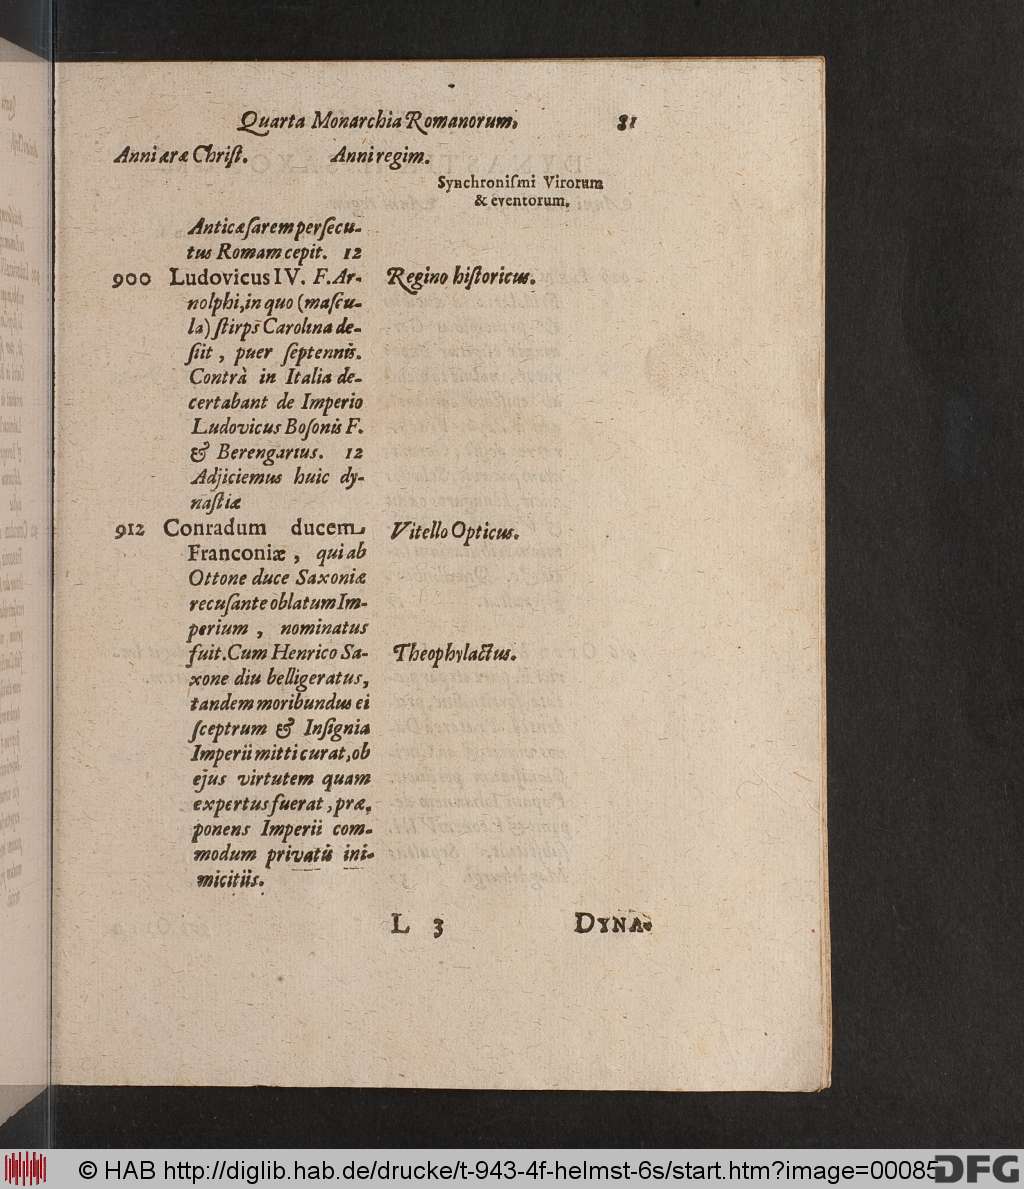 Quarta Monarchia Romanorum. 81
Anni æræ Christ. Anni regim.
Synchronismi Virorum
& eventorum.
Anticæsarem persecu-
tus Romam cepit. 12
900 Ludovicus IV. F. Ar- Regino historicus.
nolphi, in quo (mascu-
la) stirps Carolina de-
siit, puer septennis.
Contrà in Italia de-
certabant de Imperio
Ludovicus Bosonis F.
& Berengarius. 12
Adjiciemus huic dy-
nastiæ
912 Conradum ducem Vitello Opticus.
Franconiæ, qui ab
Ottone duce Saxoniæ
recusante oblatum Im-
perium, nominatus
fuit. Cum Henrico Sa- Theophylactus.
xone diu belligeratus,
tandem moribundus ei
sceptrum & Insignia
Imperii mitti curat, ob
ejus virtutem quam
expertus fuerat, præ-
ponens Imperii com-
modum privatis ini-
micitiis.
L 3 DYNA-
© HAB http://diglib.hab.de/drucke/t-943-4f-helmst-6s/start.htm?image=00085
DFG